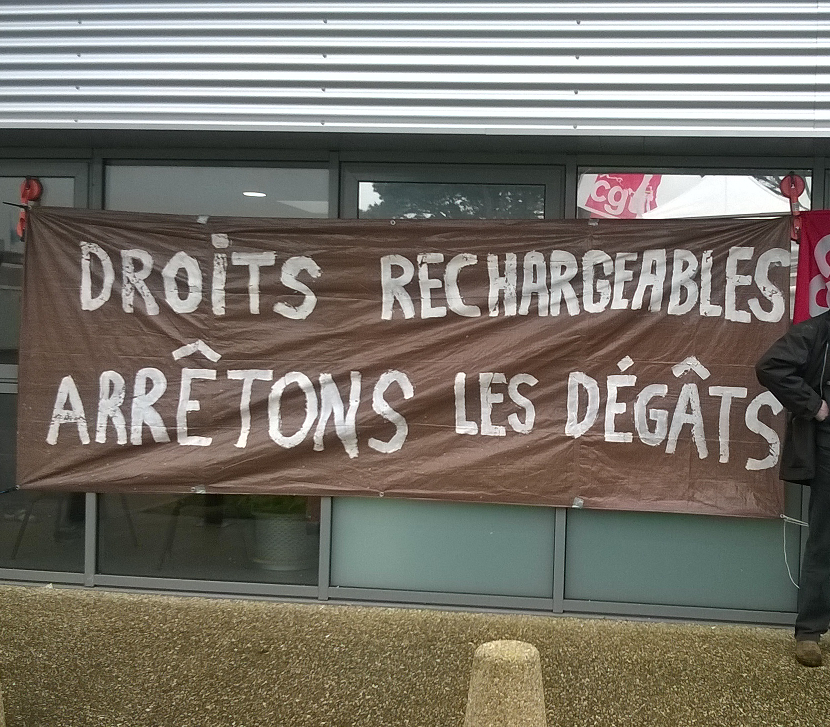 DROITS RECHARGEABLES
ARRÊTONS LES DÉGÂTS
cg